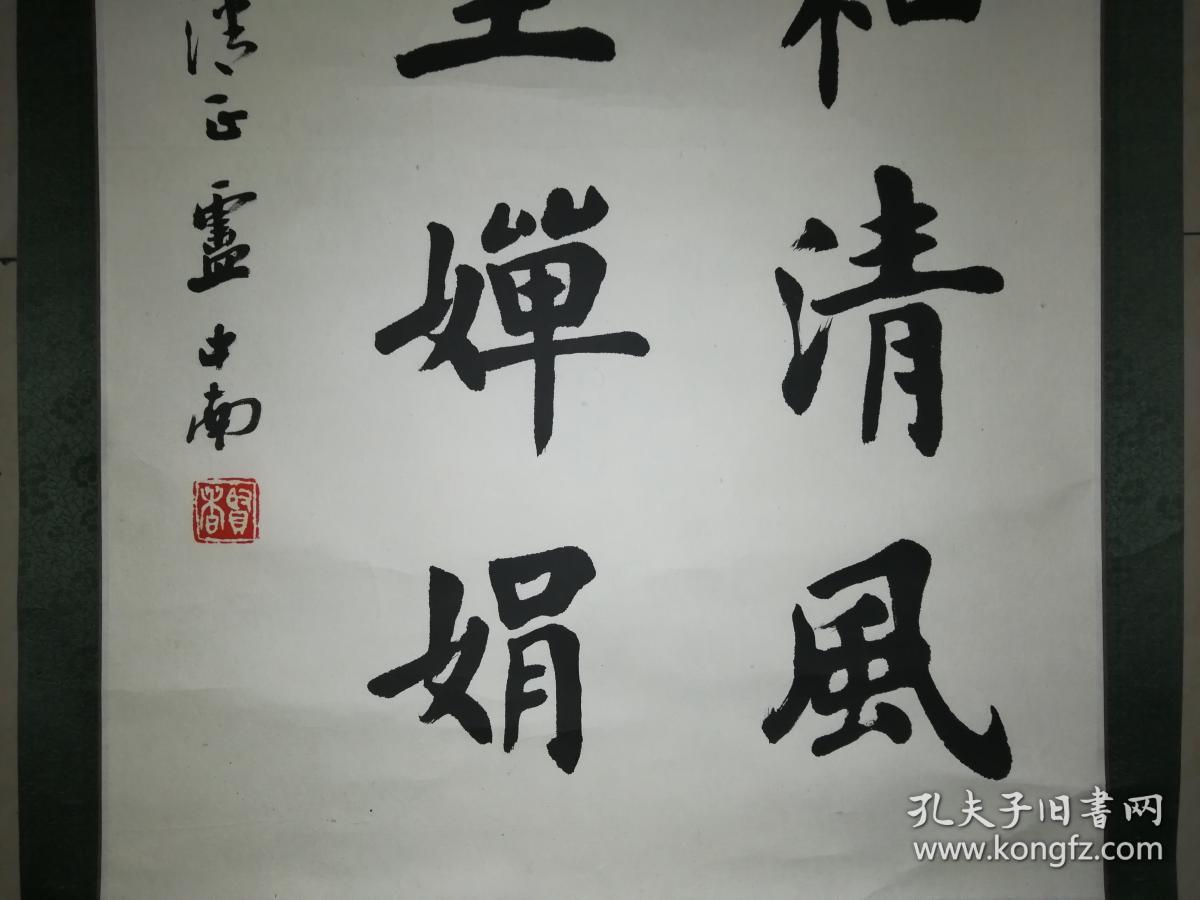 和清風
嬋娟
正盧中南
孔夫子旧書网
www.kongfz.com